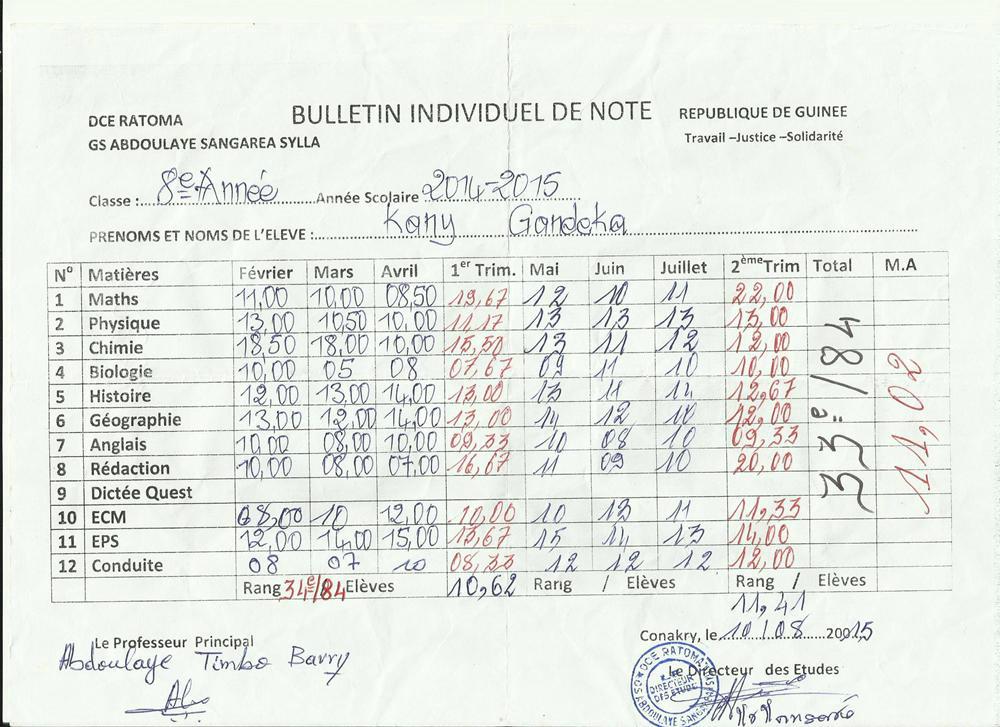 DCE RATOMA BULLETIN INDIVIDUEL DE NOTE REPUBLIQUE DE GUINEE
GS ABDOULAYE SANGAREA SYLLA Travail –Justice –Solidarité
Classe : 8e Année Année Scolaire 2014-2015
PRENOMS ET NOMS DE L'ELEVE : Kany Gandeka
N° Matières Février Mars Avril 1er Trim. Mai Juin Juillet 2ème Trim Total M.A
1 Maths 11,00 10,00 08,50 19,67 12 10 11 22,00
2 Physique 13,00 10,50 10,00 11,17 13 13 13 13,00
3 Chimie 18,50 18,00 10,00 15,50 13 11 12 12,00
4 Biologie 10,00 05 08 07,67 09 11 10 10,00
5 Histoire 12,00 13,00 14,00 13,00 13 11 14 12,67
6 Géographie 13,00 12,00 14,00 13,00 14 12 10 12,00
7 Anglais 10,00 08,00 10,00 09,33 10 08 10 09,33
8 Rédaction 10,00 08,00 07,00 16,67 11 09 10 20,00
9 Dictée Quest
10 ECM 08,00 10 12,00 10,00 10 13 11 11,33
11 EPS 12,00 14,00 15,00 13,67 15 14 13 14,00
12 Conduite 08 07 10 08,33 12 12 12 12,00
33e/84
11,02
Rang 34e/84 Elèves 10,62 Rang / Elèves Rang / Elèves
11,41
Le Professeur Principal Conakry, le 10/08 20015
Abdoulaye Timbo Barry Le Directeur des Etudes
DCE RATOMA
DIRECTEUR
DES ETUDE
ABDOULAYE SANGAREA